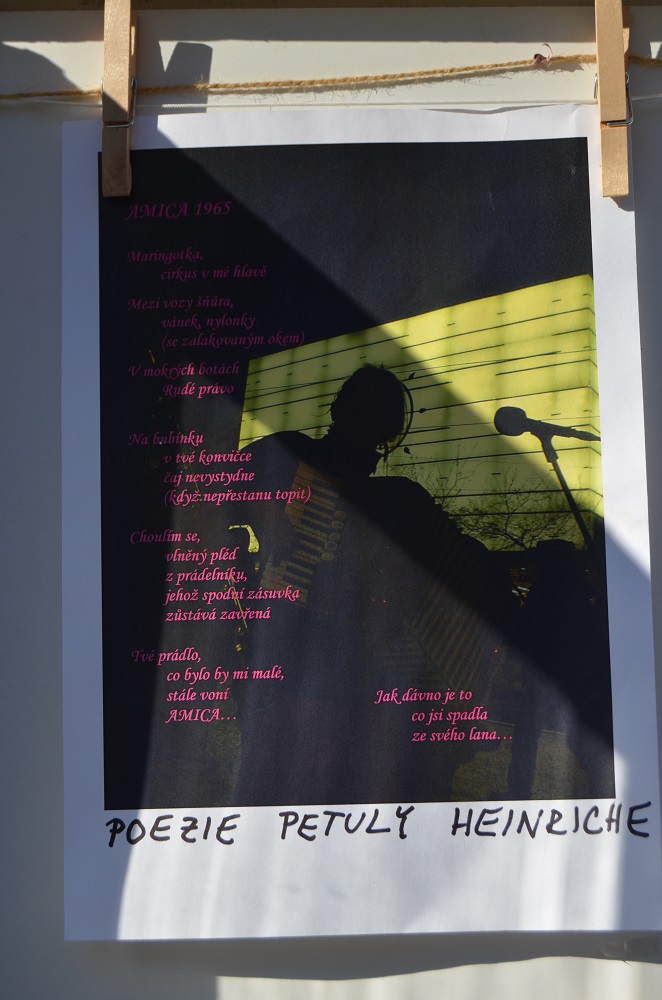 AMICA 1965
Maringotka,
cirkus v mé hlavě
Mezi vozy šňůra,
vánek, nylonky
(se zalakovaným okem)
V mokrých botách
Rudé právo
Na bubínku
v tvé konvičce
čaj nevystydne
(když nepřestanu topit)
Choulím se,
vlněný pléd
z prádelníku,
jehož spodní zásuvka
zůstává zavřená
Tvé prádlo,
co bylo by mi malé,
stále voní
AMICA...
Jak dávno je to
co jsi spadla
ze svého lana...
POEZIE PETULY HEINRICHE